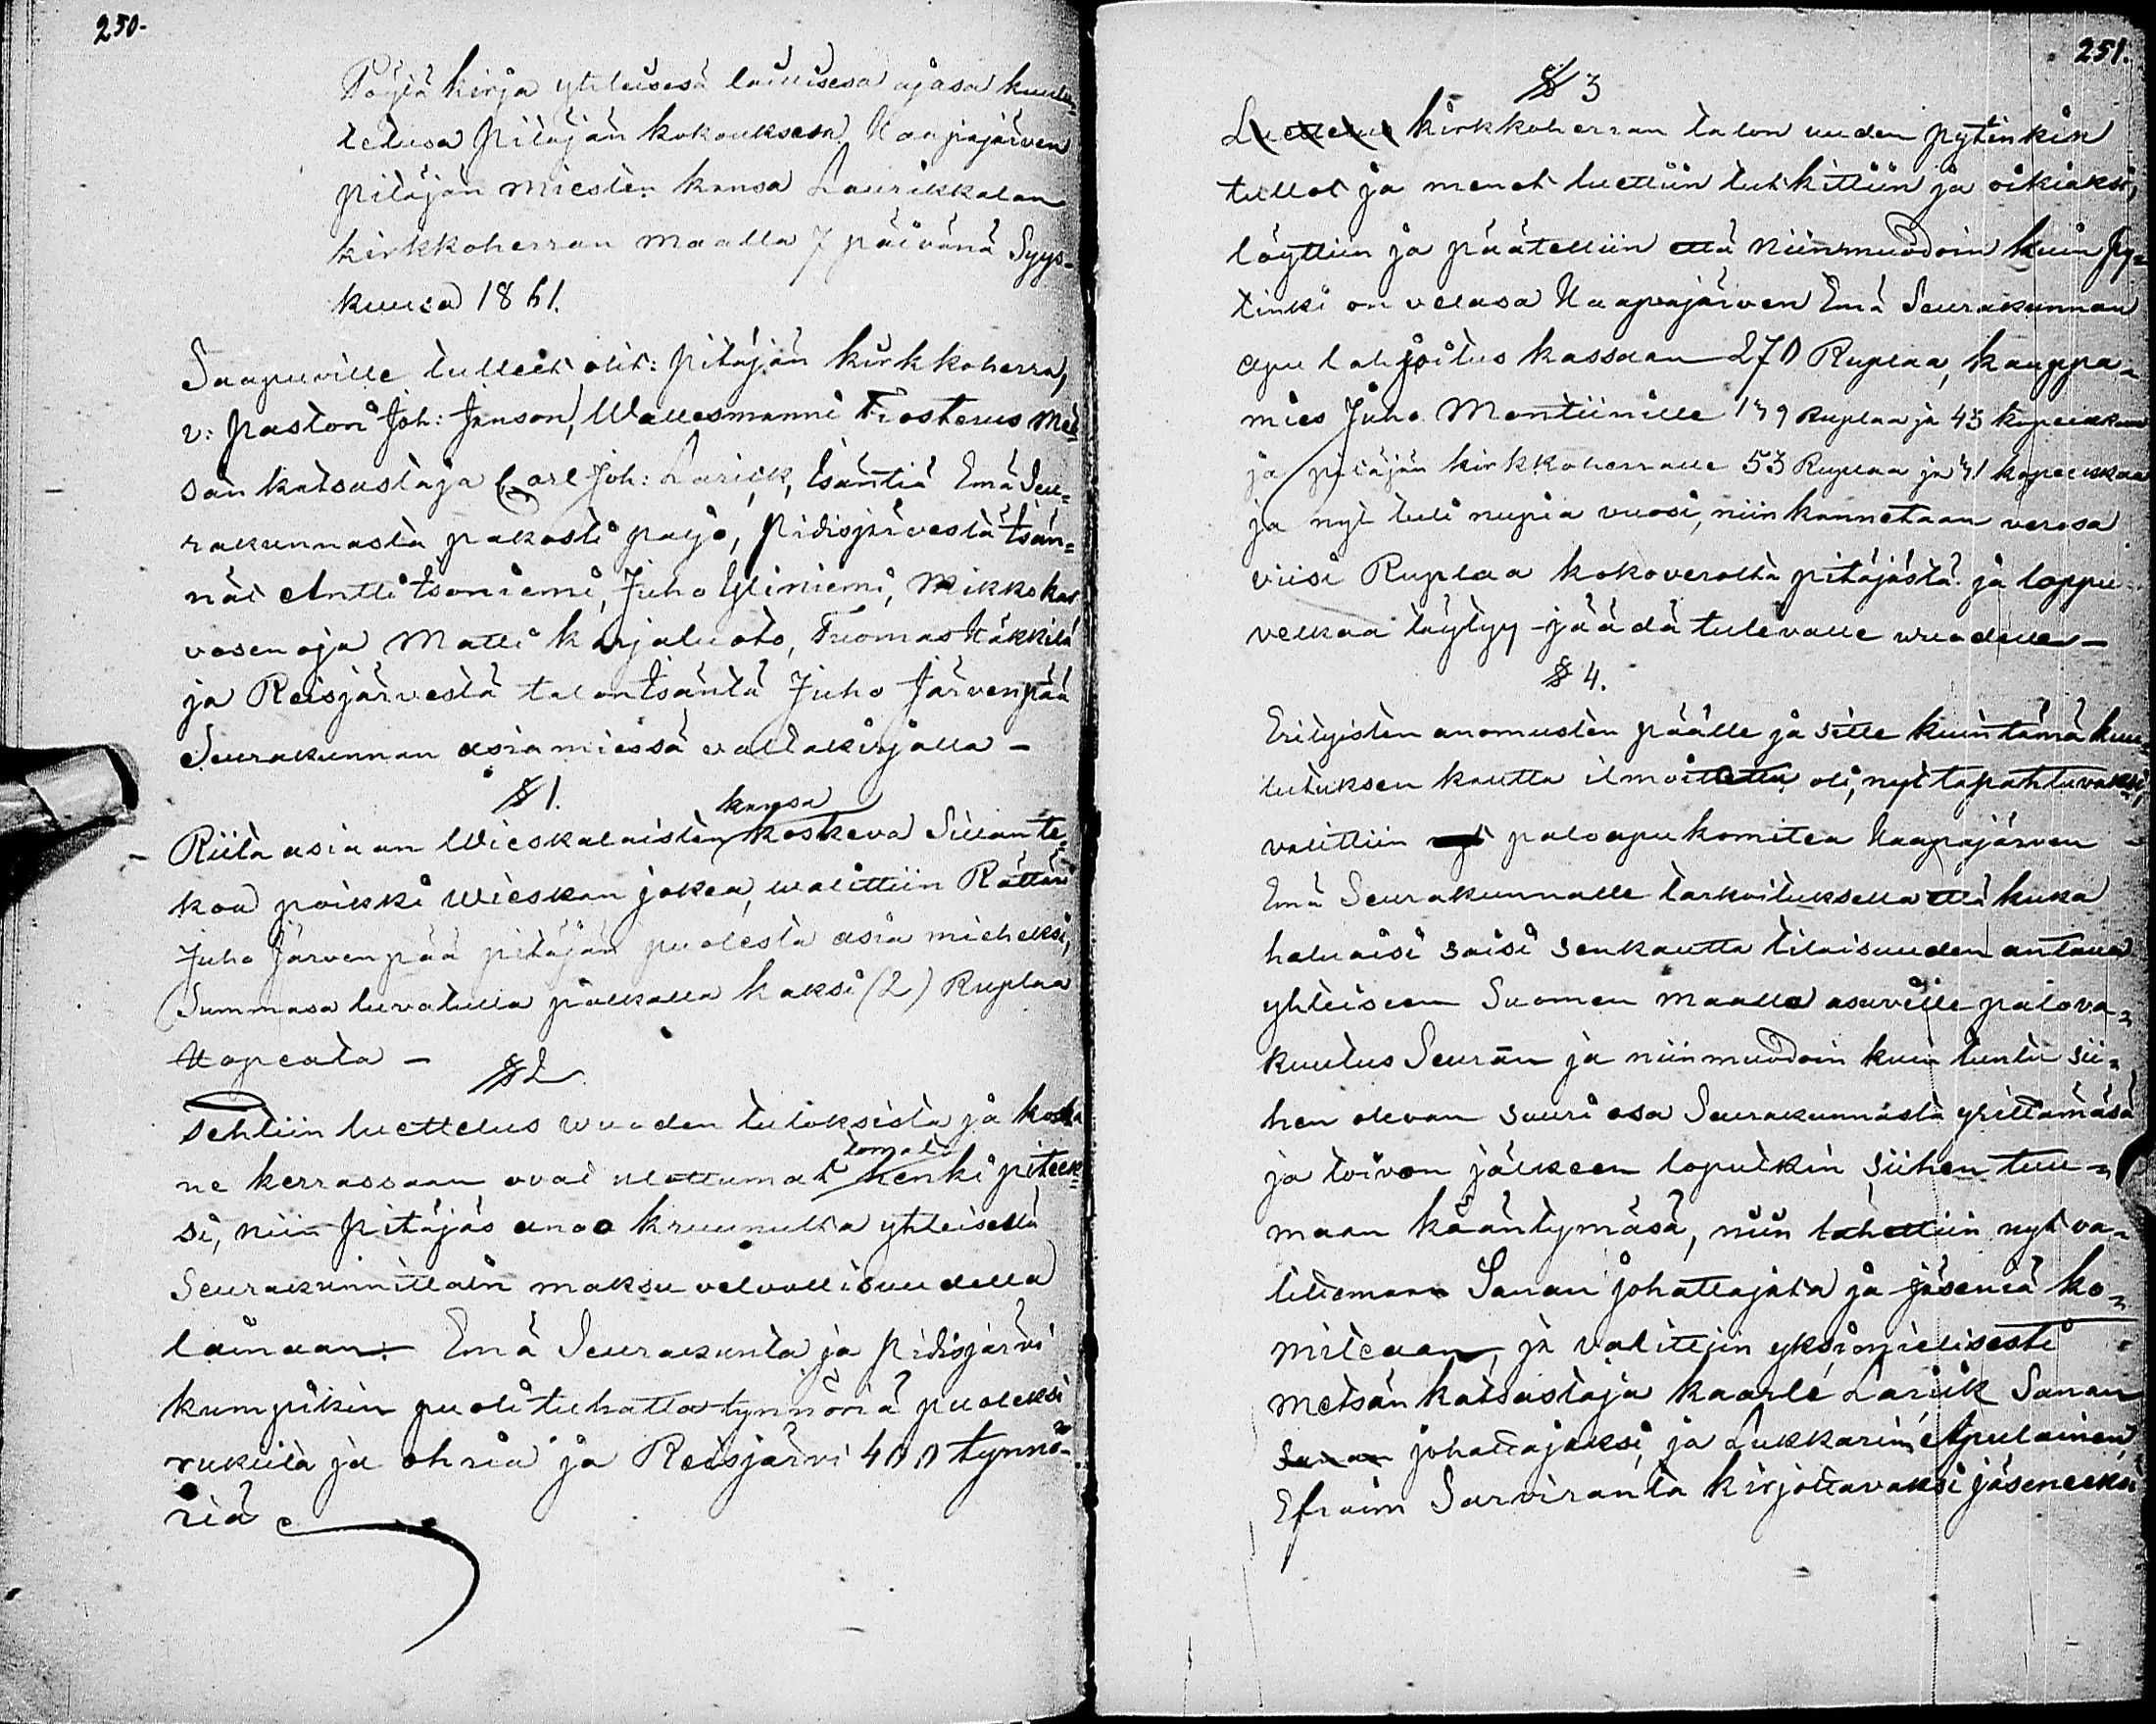 250.
Pöytä kirja yhteisesä laillisesa ajasa kuulu=
tetusa Pitäjän kokouksesa Haapajärven
pitäjän miesten kansa Laurikkalan
kirkkoherran maalla 7 päivänä Syys=
kuusa 1861.
Saapuville tulleet olit: pitäjän kirkkoherra,
v: pastori Joh: Janson, Wallesmanni Frosterus Met
sän katsastaja Carl Joh: Lariik, Isäntiä Emä Seu=
rakunnasta pakosti paljo, Pidisjärvestä Isän=
nät Antti Isoniemi, Juho Yliniemi, Mikko kar
vosenoja Matti Karjaluoto, Tuomas Häkkilä
ja Reisjärvestä talon Isäntä Juho Järvenpää
Seurakunnan asiamiessä valtakirjalla —
§ 1.
kansa
Riita asiaan Wieskalaisten koskeva Sillan te=
koa poikki Wieskan jokea, walittiin Rättäri
Juho Järvenpää pitäjän puolesta asia mieheksi,
Summasa luvatulla palkalla kaksi (2) Ruplaa
Hopeata —
§ 2
Tehtiin luettelus wuoden tuloksista ja koska
tomat
ne kerrassaan ovat ulottumat henki piteek
si, niin Pitäjäs anoo kruunulta yhteisellä
Seurakunnittain maksu velvollisuudella
lainaan: Emä Seurakunta ja Pidisjärvi
kumpikin puoli tuhatta tynnöriä puoleksi
rukiita ja ohria ja Reisjärvi 400 tynnö=
riä
251.
§ 3
Luettelus kirkkoherran talon uuden pytinkin
tullot ja menot luettiin tutkittiin ja oikiaksi,
löyttiin ja päätettiin että niinmuodoin kuin Py=
tinki on velasa Haapajärven Emä Seurakunnan
apu lahjoitus kassaan 270 Ruplaa, kauppa=
mies Juho Montiinille 139 Ruplaa ja 43 kopeikkaa
ja pitäjän kirkkoherralle 53 Ruplaa ja 41 kopeikkaa
ja nyt tuli nupia vuosi, niin kannetaan verosa
viisi Ruplaa kokoverolta pitäjästä ja loppu
velkaa täytyy jäädä tulevalle wuodelle —
§ 4.
Erityisten anomusten päälle ja sitte kuin tämä kuu=
lutuksen kautta ilmoitettu oli, nyt tapahtuvaksi,
valittiin nyt paloapu komitea Haapajärven
Emä Seurakunnalle tarkoituksella että kuka
haluaisi saisi senkautta tilaisuuden antaua
yhteiseen Suomen maalla asuville palova=
kuutus Seuran ja niinmuodoin kuin tuntu sii=
hen olevan suuri osa Seurakunnasta yrittämäsä
ja toivon jälkeen loputkin siihen tuu=
maan kääntymäsä, niin tahottiin nyt va=
litemaan Sanan johattajata ja jäseniä ko=
miteaan, ja valittiin yksimielisesti
metsän katsastaja kaarle Lariik Sanan
Sanan johattajaksi, ja Lukkarin Apulainen
Efraim Sarviranta kirjottavaksi jäseneeksi